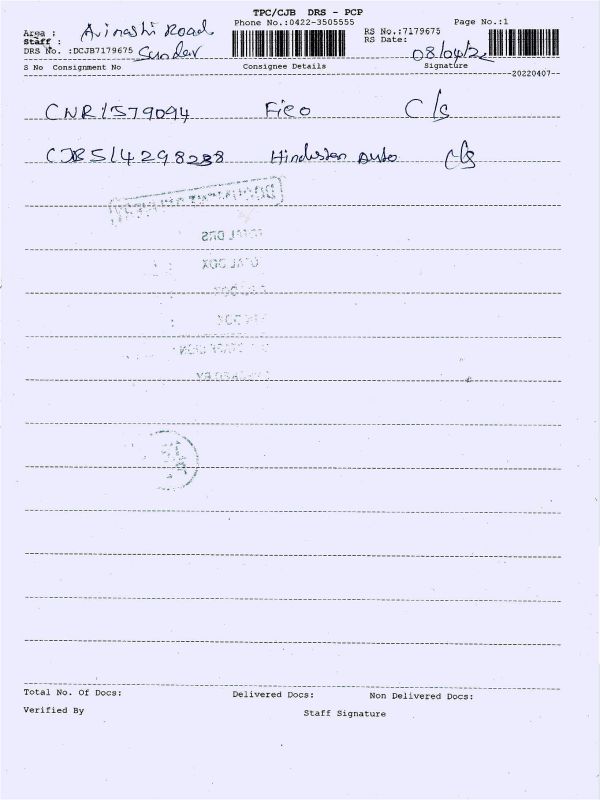 TPC/CJB DRS - PCP
Phone No.:0422-3505555
Page No.:1
Area : Avinashi Road
Staff : Sundar
DRS No. :DCJB7179675
RS No.:7179675
RS Date: 08/04/22
S No Consignment No Consignee Details Signature
--20220407--
CNR1579094 Fico C/s
Hindustan Auto C/s
TOTAL DRS
TOTAL BOX
Total No. Of Docs: Delivered Docs: Non Delivered Docs:
Verified By Staff Signature